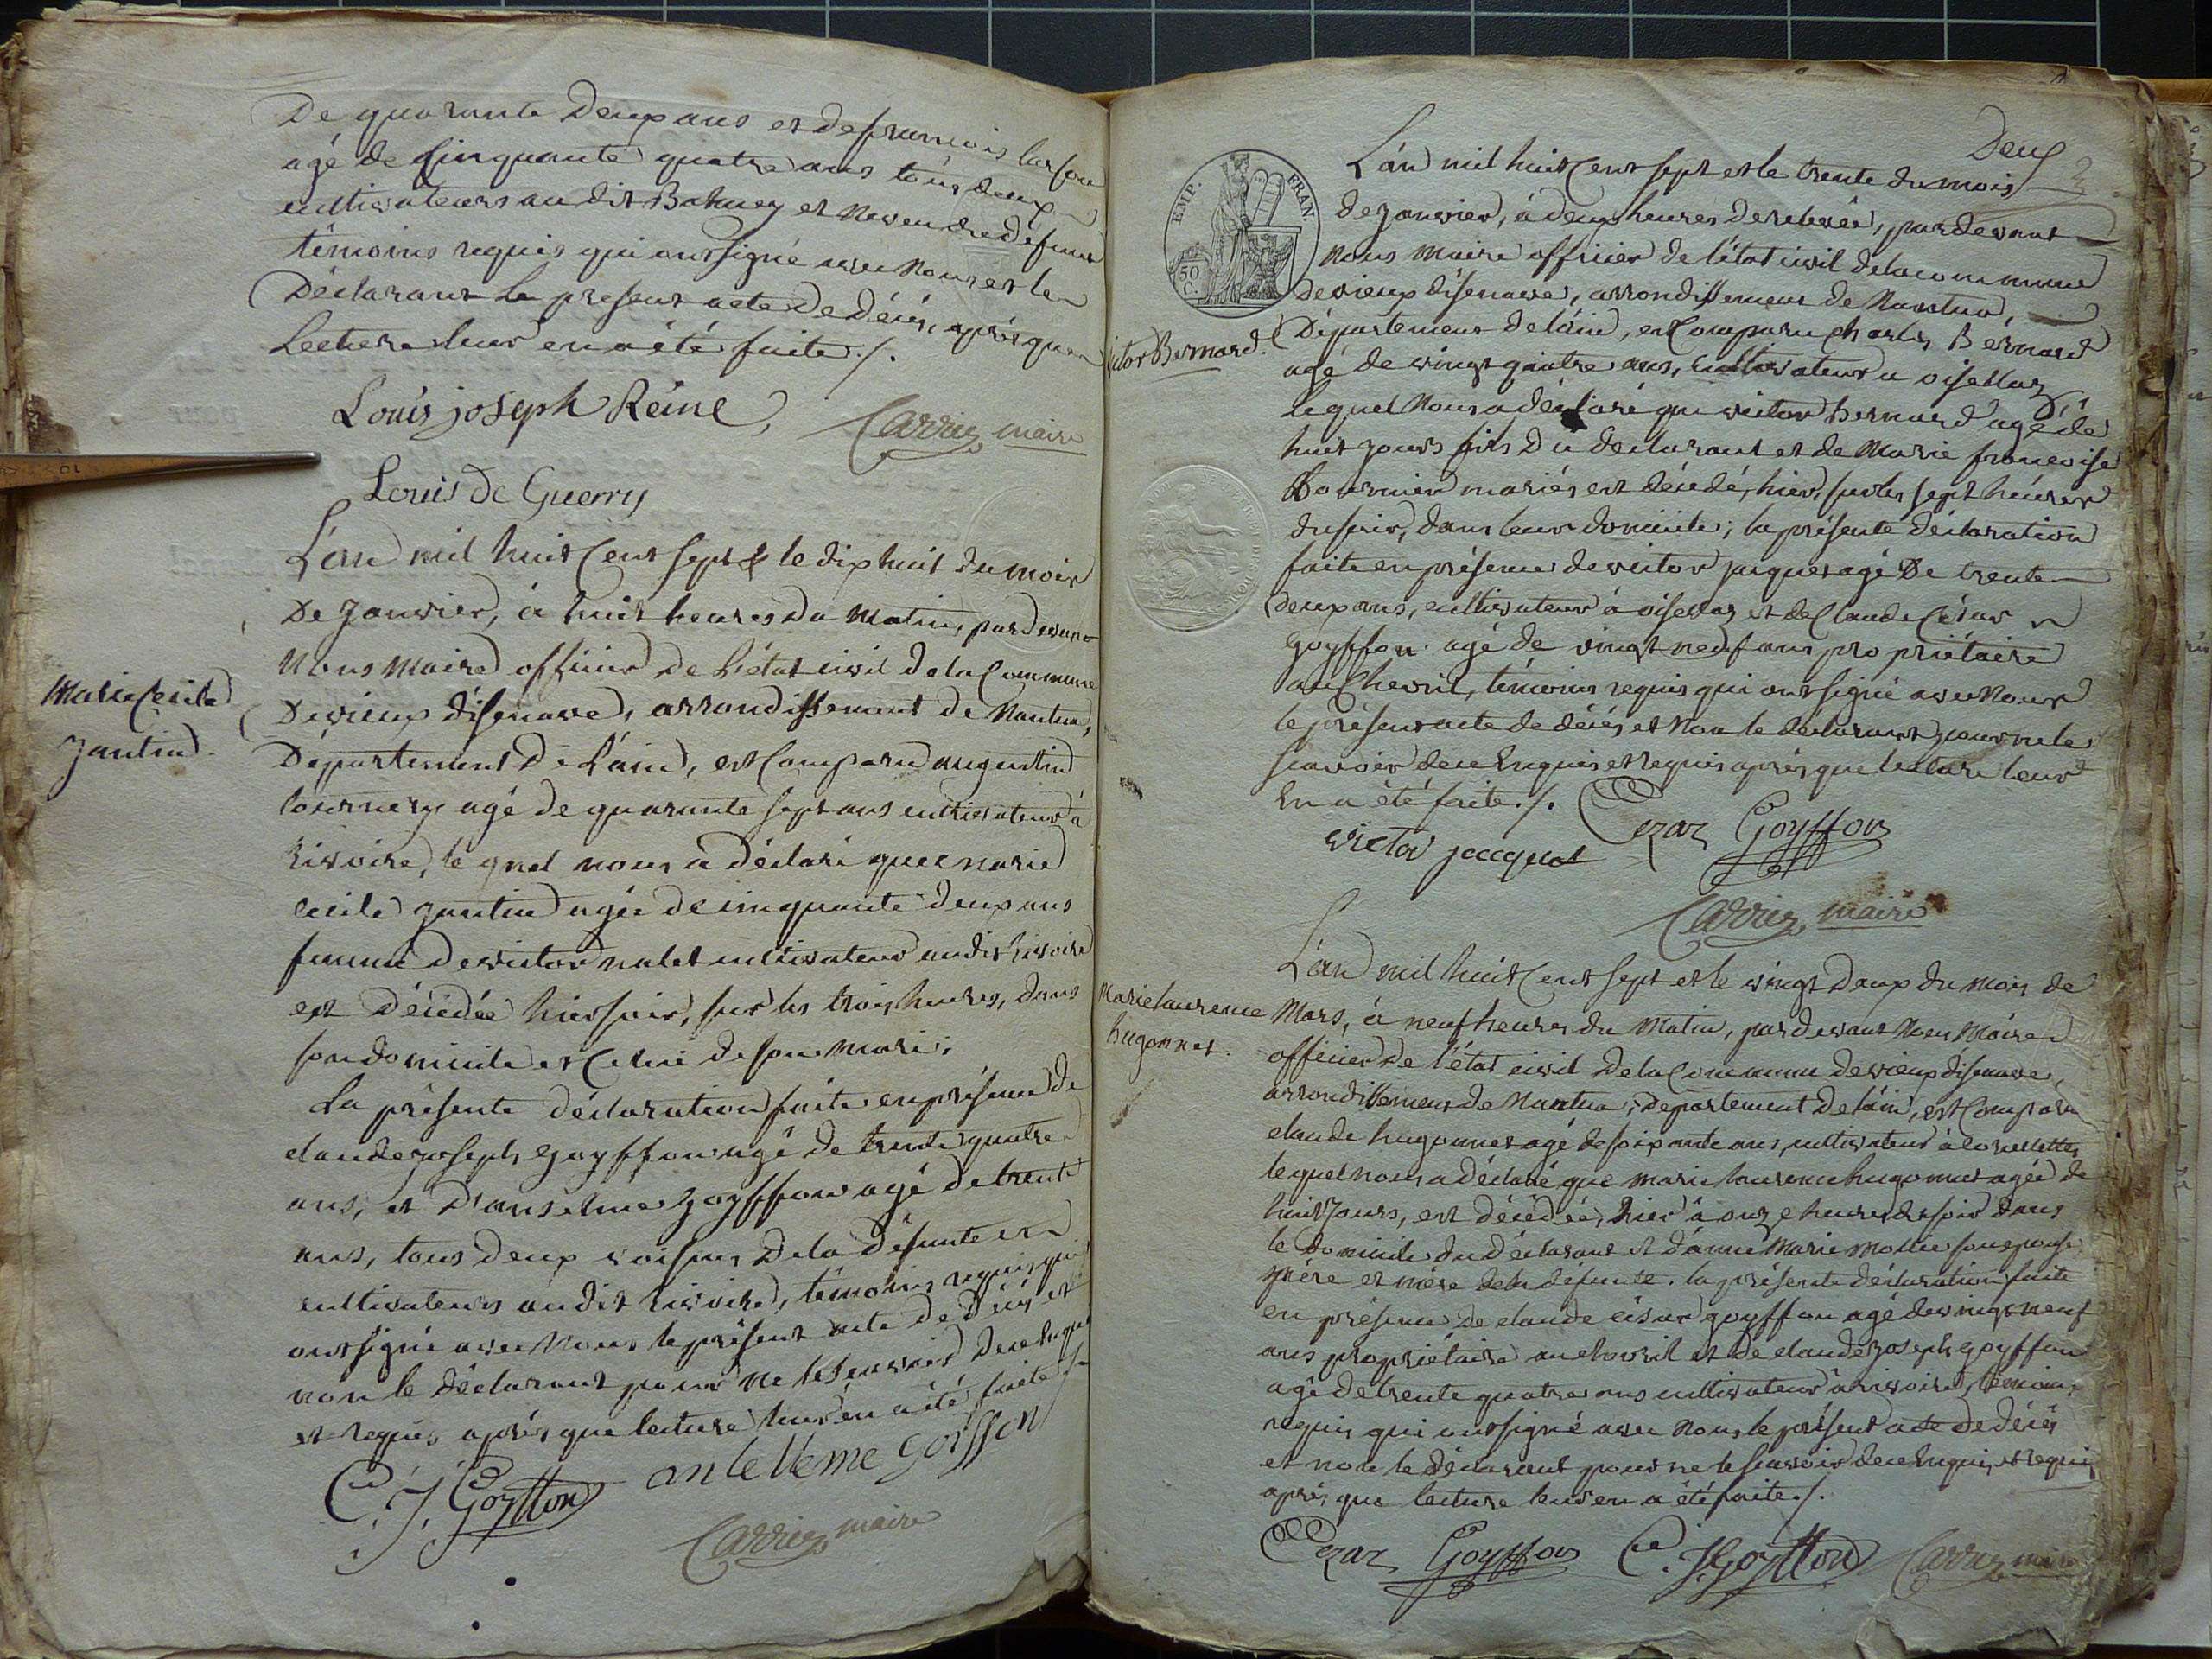 De quarante Deux ans et de francois
agé de Cinquante quatre ans tous deux
cultivateurs au dit et neveu du défunt
témoins requis qui ont signé avec nous et le
Déclarant le present acte de Décés, après que
Lecture leur en a été faite ./.
Louis joseph Reine
Carrier maire
Louis De Guerry
L'an mil huit Cent sept & le dix huit du mois
De Janvier, à huit heures du matin, pardevant
Nous Maire officier de L'état civil de la Commune
De vieux disenave, arrondissement de Nantua,
Département De L'ain, est Comparu augustin
tournery agé de quarante sept ans cultivateur à
Rivoire, le quel nous a déclaré que marie
Cecile Jantin agée de cinquante deux ans
femme de victor nalet cultivateur au dit Rivoire
est Décédée hier soir, sur les trois heures, dans
son domicile et Celui de son mari.
La présente déclaration faite en présence de
claude joseph Goyffon agé de trente quatre
ans, et D'anselme goyffon agé de trente
ans, tous deux voisins De la défunte et
cultivateurs au dit Rivoire, témoins requis qui
ont signé avec nous le présent acte de Décés et
non le déclarant pour ne le scavoir De ce Enquis
et requis après que lecture leur en a été faite ./.
Marie Cecile
Jantin.
C. J. Goyffon
Carrier maire
Deux
EMP. FRAN.
50
C.
L'an mil huit Cent sept et le trente du mois
de Janvier, à deux heures de relevée, pardevant
nous Maire officier de l'état civil de la commune
De vieux disenave, arrondissement de Nantua,
Département de l'ain, est Comparu Charles Bernard
agé de vingt quatre ans, cultivateur a oisellaz
lequel Nous a déclaré que victor Bernard agé de
huit jours fils Du declarant et de Marie francoise
mariés est décédé, hier, sur les sept heures
du soir, dans leur domicile; la présente déclaration
faite en présence de victor jacquet agé De trente
deux ans, cultivateur à oisellaz et de Claude César
Goyffon agé de vingt neuf ans propriétaire
au Chevril, témoins requis qui ont signé avec Nous
le présent acte de décés et Non le déclarant pour ne le
scavoir de ce Enquis et requis après que lecture leur
En a été faite ./.
victor Bernard.
victor jacquet
Cezar Goyffon
Carrier maire
L'an mil huit Cent sept et le vingt Deux du mois de
Mars, à neuf heures du Matin, par devant Nous Maire
officier de l'état civil De la Commune de vieux disenave,
arrondissement de Nantua, département De l'ain, est Comparu
claude hugonnet agé de soixante ans, cultivateur à
lequel nous a déclaré que marie laurence hugonnet agée de
huit Jours, est décédée, hier à onze heures du soir dans
le domicile du déclarant et d'anne Marie Mollie son epouse,
père et mère de la défunte. la présente déclaration faite
en présence de claude césar goyffon agé de vingt neuf
ans propriétaire au chevril et de claude joseph goyffon
agé de trente quatre ans cultivateur à rivoire, témoins
requis qui ont signé avec nous le présent acte de décés
et non le déclarant pour ne le scavoir de ce Enquis et requis
après que lecture leur en a été faite ./.
Marie laurence
hugonnet.
Cezar Goyffon
C. J. Goyffon
Carrier maire